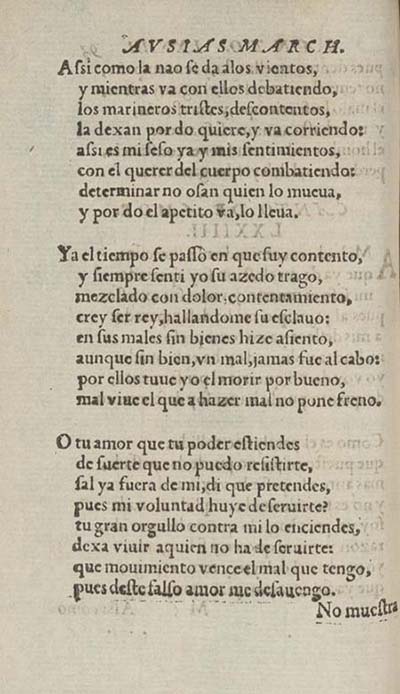 AVSIAS MARCH.
Assi como la nao se da alos vientos,
y mientras va con ellos debatiendo,
los marineros tristes, descontentos,
la dexan por do quiere, y va corriendo:
assi es mi seso ya y mis sentimientos,
con el querer del cuerpo combatiendo:
determinar no osan quien lo mueua,
y por do el apetito va, lo lleua.
Ya el tiempo se passò en que fuy contento,
y siempre senti yo su azedo trago,
mezclado con dolor, contentamiento,
crey ser rey, hallandome su esclauo:
en sus males sin bienes hize asiento,
aunque sin bien, vn mal, jamas fue al cabo:
por ellos tuue yo el morir por bueno,
mal viue el que a hazer mal no pone freno.
O tu amor que tu poder estiendes
de suerte que no puedo resistirte,
sal ya fuera de mi, di que pretendes,
pues mi voluntad huye de seruirte?
tu gran orgullo contra mi lo enciendes,
dexa viuir aquien no ha de seruirte:
que mouimiento vence el mal que tengo,
pues deste falso amor me desauengo.
No muestra